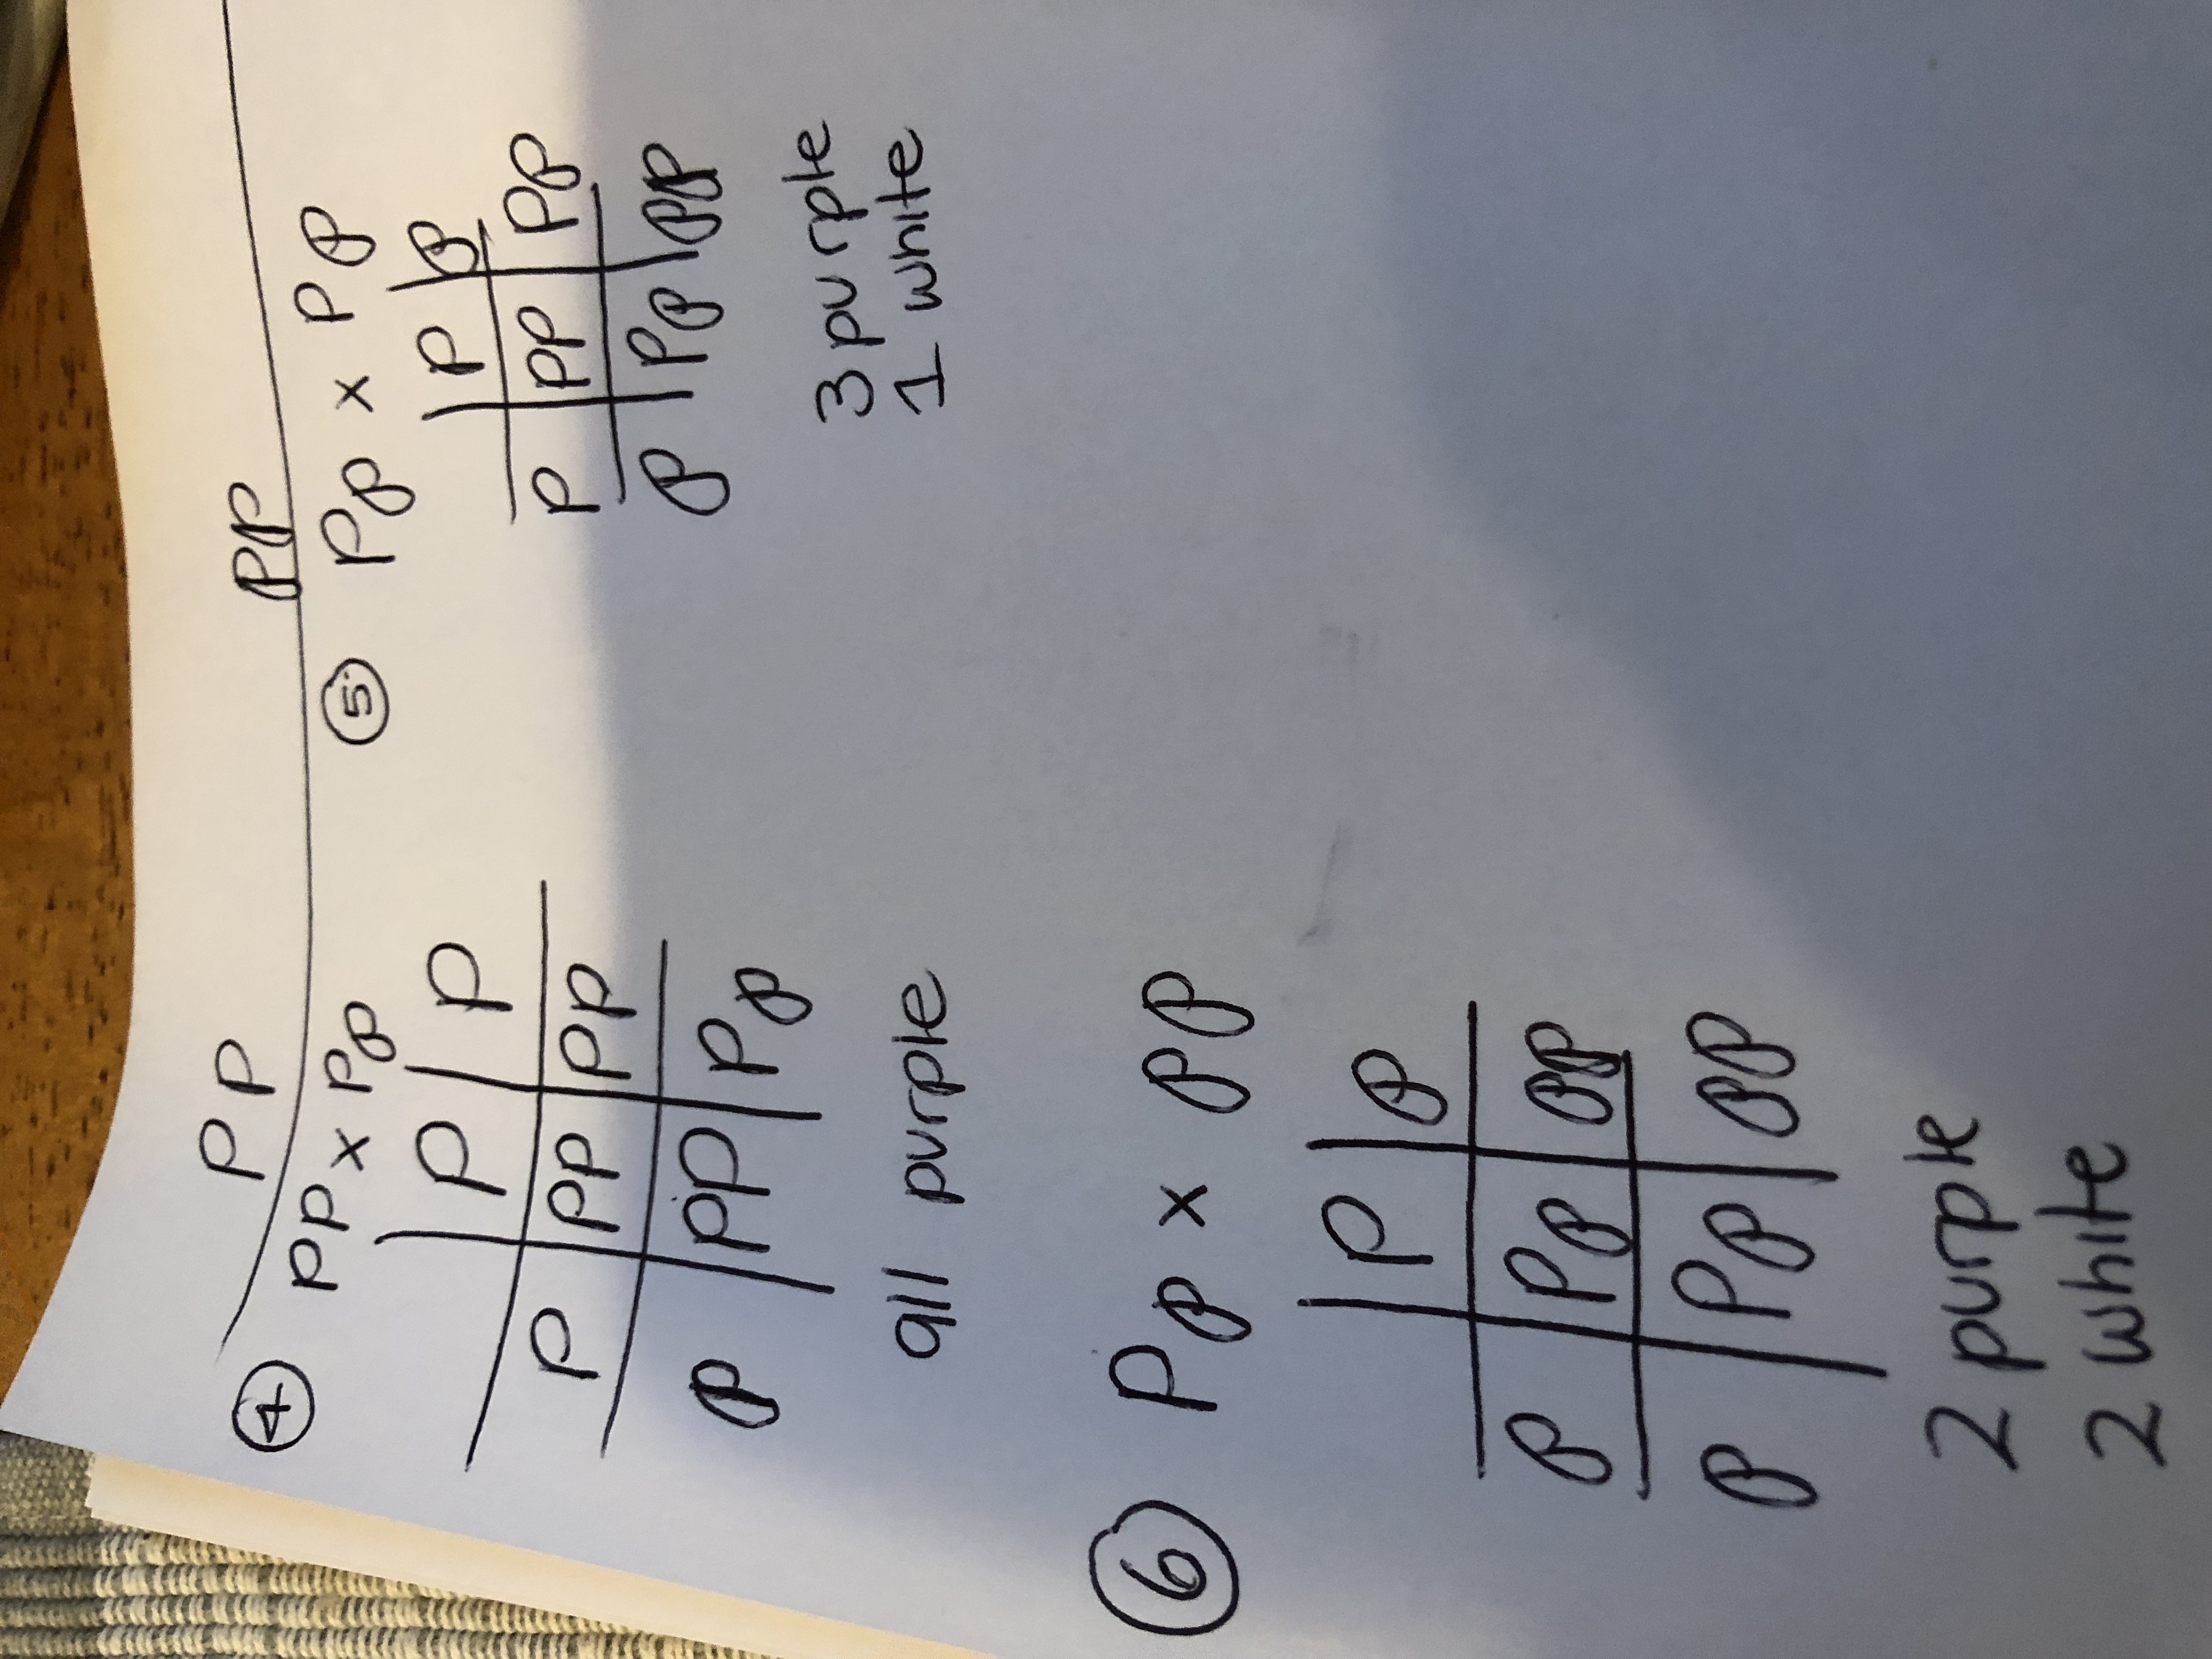 PP
pp
④ PP x Pp
P P
P PP PP
p PP Pp
all purple
⑤ Pp x Pp
P p
P PP Pp
p Pp pp
3 purple
1 white
⑥ Pp x pp
P p
p Pp pp
p Pp pp
2 purple
2 white